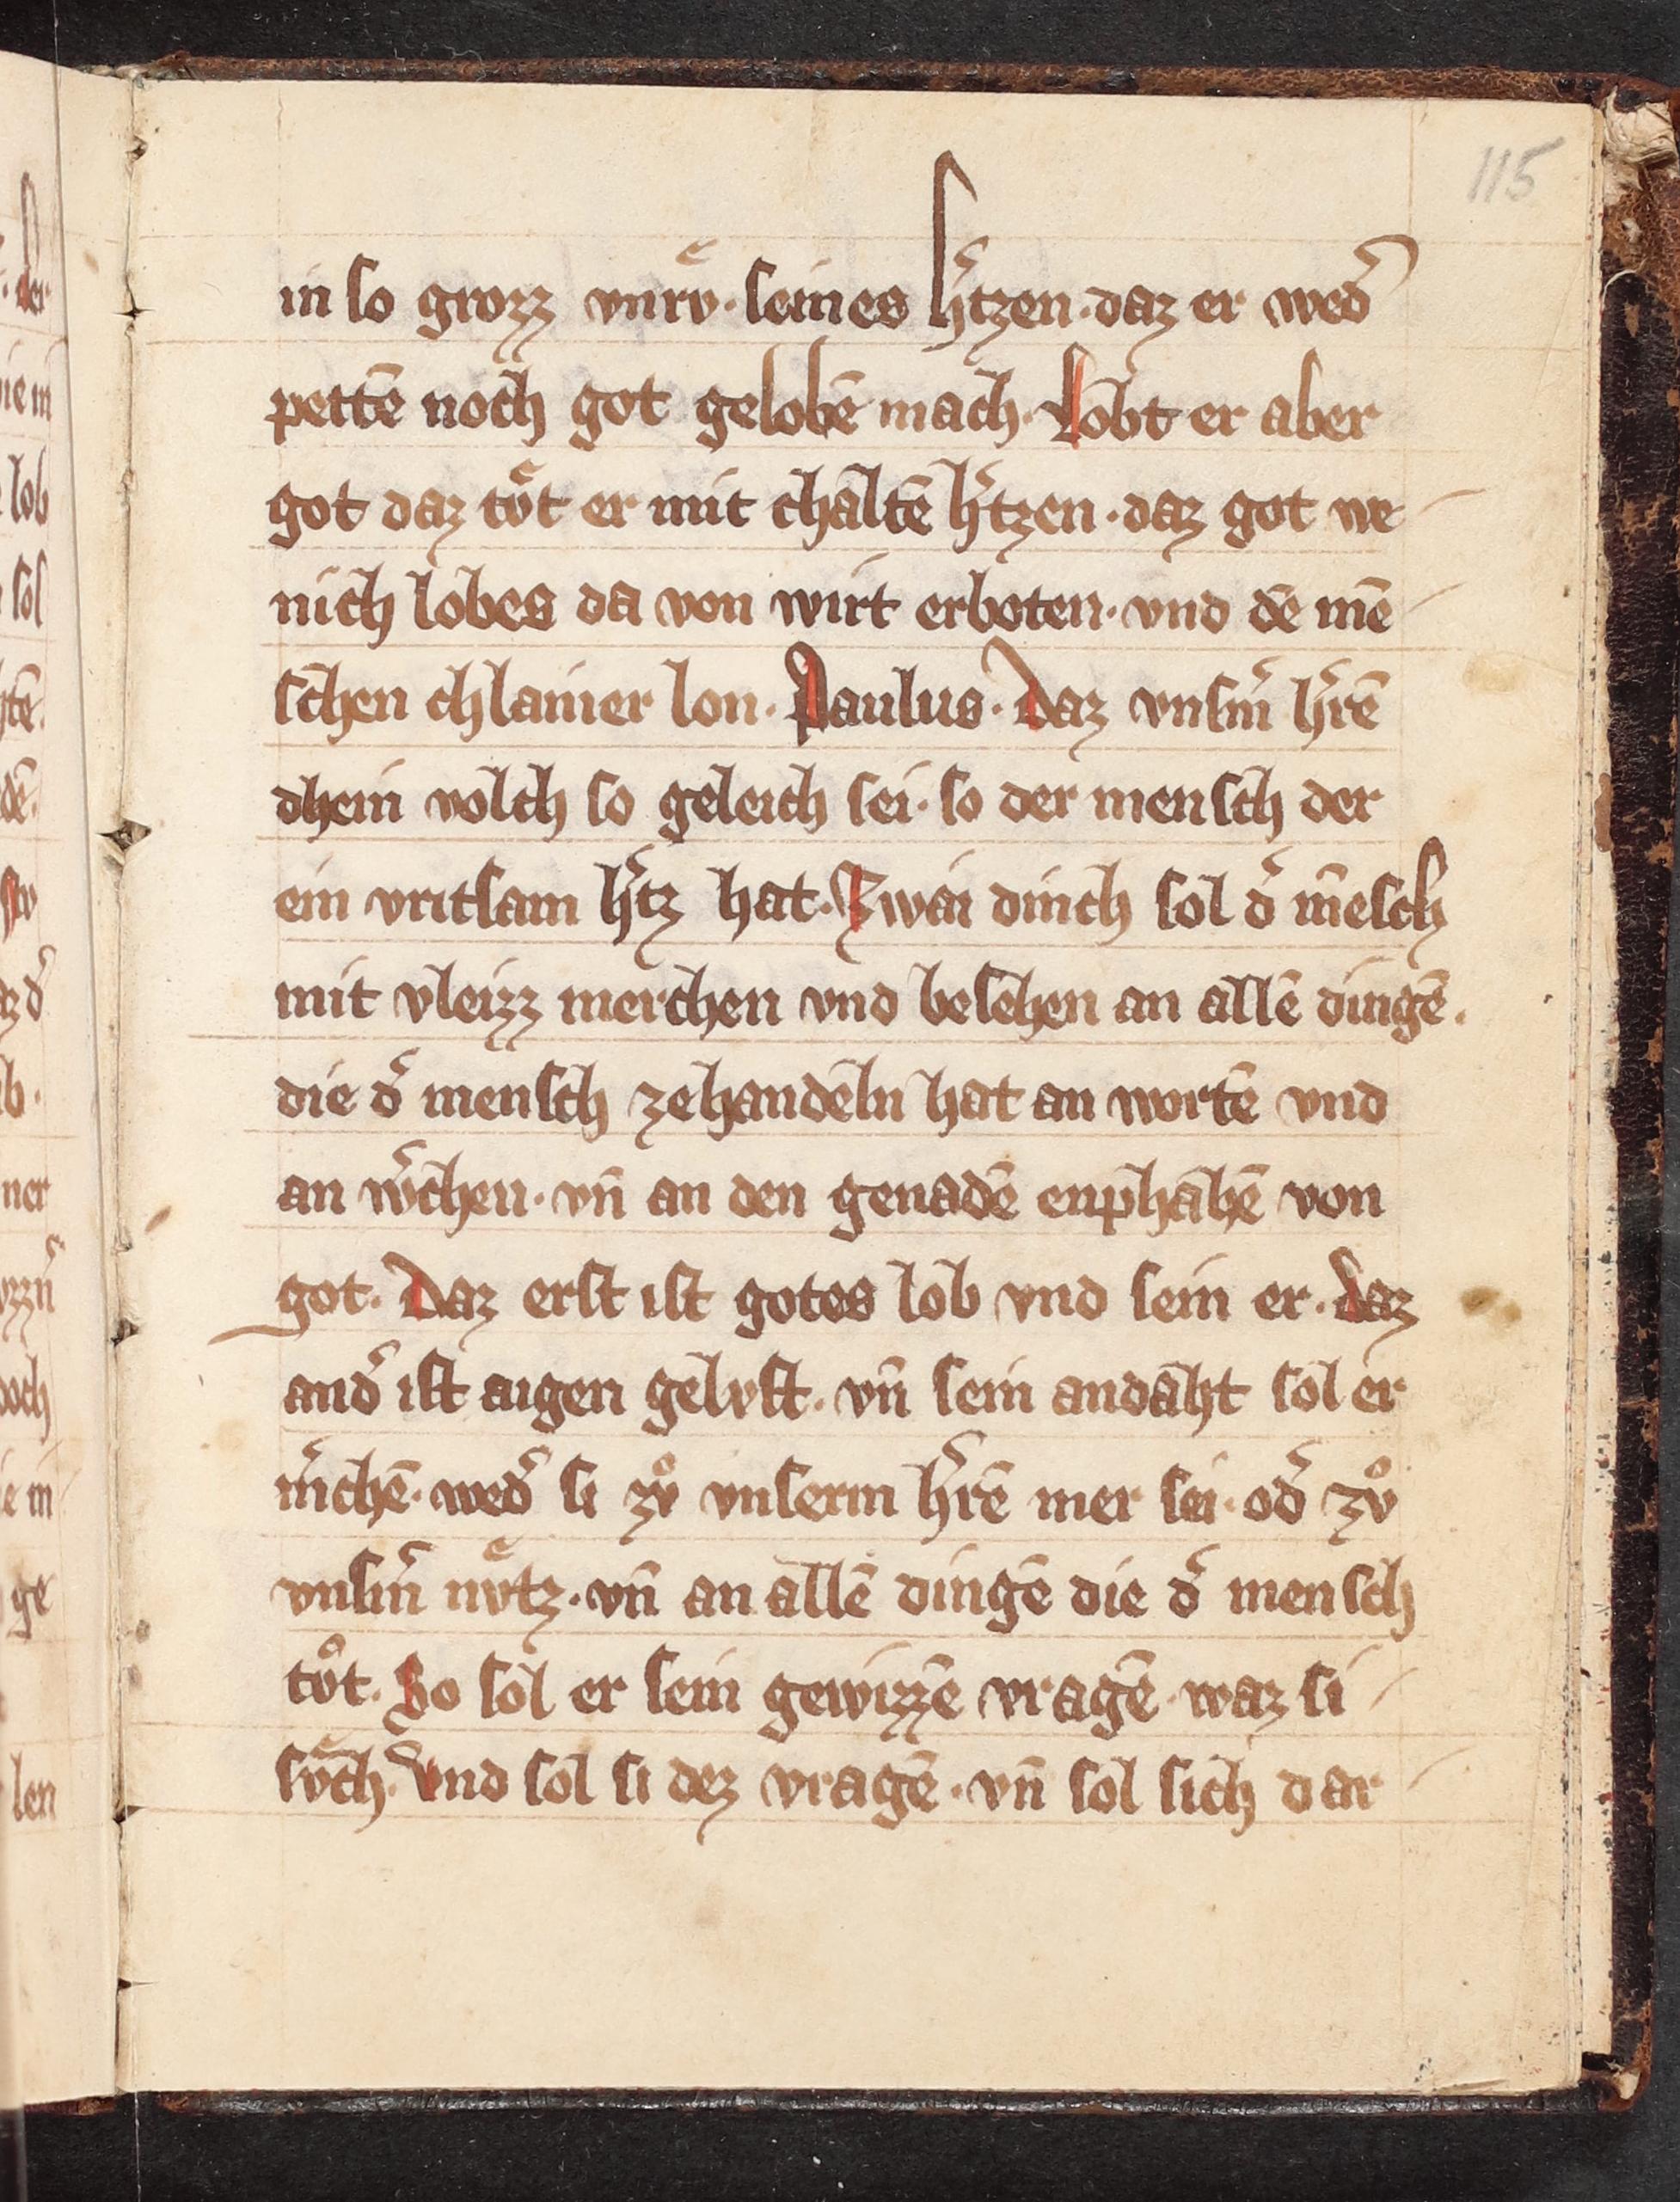 115
in so grozz vnrvͤ · seines h̾tzen · daz er wed̾
pettē noch got gelobē mach · Lobt er aber
got daz tvͤt er mit chaltē h̾tzen · daz got we
nich lobes da von wirt erboten · vnd dē mē
schen chlainer lon · Paulus · Daz vnsm̾ h̾rē
dhein volch so geleich sei · so der mensch der
ein vritsam h̾tz hat · Zwai dinch sol d̾ m̄esch
mit vleizz merchen vnd besehen an allē dingē ·
die d̾ mensch zehandeln hat an wortē vnd
an w̾chen · vn̄ an den genadē enphahē von
got · Daz erst ist gotes lob vnd sein er · daz
and̾ ist aigen gelvst · vn̄ sein andaht sol er
m̾chē · wed̾ si zvͦ vnserm h̾rē mer sei · od̾ zvͦ
vnsm̾ nvͤtz · vn̄ an allē dingē die d̾ mensch
tvͦt · So sol er sein gewizzē vragē · waz si
svͤch · Vnd sol si dez vragē · vn̄ sol sich dar